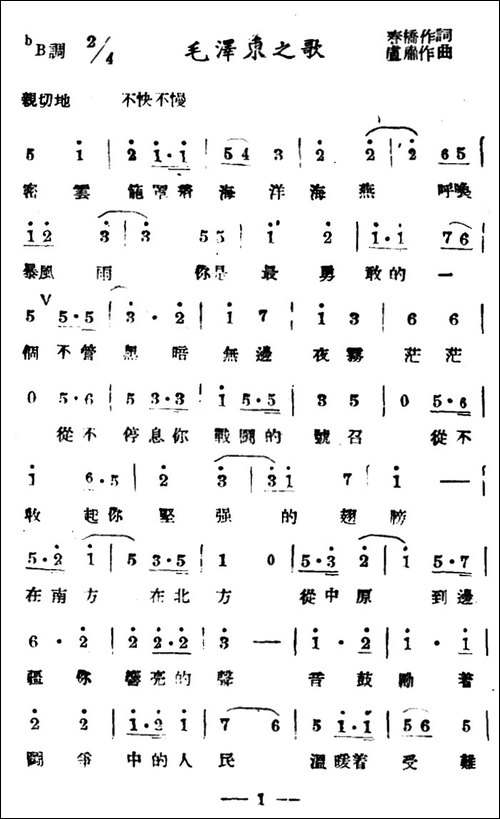 ♭B調 2/4 毛澤東之歌 春橋作詞
盧肅作曲
親切地 不快不慢
5 i | 2 i·i | 54 3 | 2 2 | 2 65 |
密雲籠罩着海洋海燕 呼喚
i2 3 | 3 55 | i 2 | i·i 76 |
暴風雨 你是最勇敢的一
5 V 5·5 | 3·2 | i 7 | i 3 | 6 6 |
個不管黑暗無邊夜霧茫茫
0 5·6 | 5 3·3 | i 5·5 | 3 5 | 0 5·6 |
從不停息你戰鬪的號召 從不
i 6·5 | 2 3 | 3i 7 | i — |
收起你堅强的翅膀
5·2 i | 5 3·5 | i 0 | 5·3 2 | i 5·7 |
在南方 在北方 從中原 到邊
6·2 | 2 2·2 | 3 — | i·2 | i i |
疆你響亮的聲音鼓勵着
2 2 | i·2 i | 7 6 | 5 i·i | 56 5 |
鬪爭中的人民 溫暖着受難
— 1 —